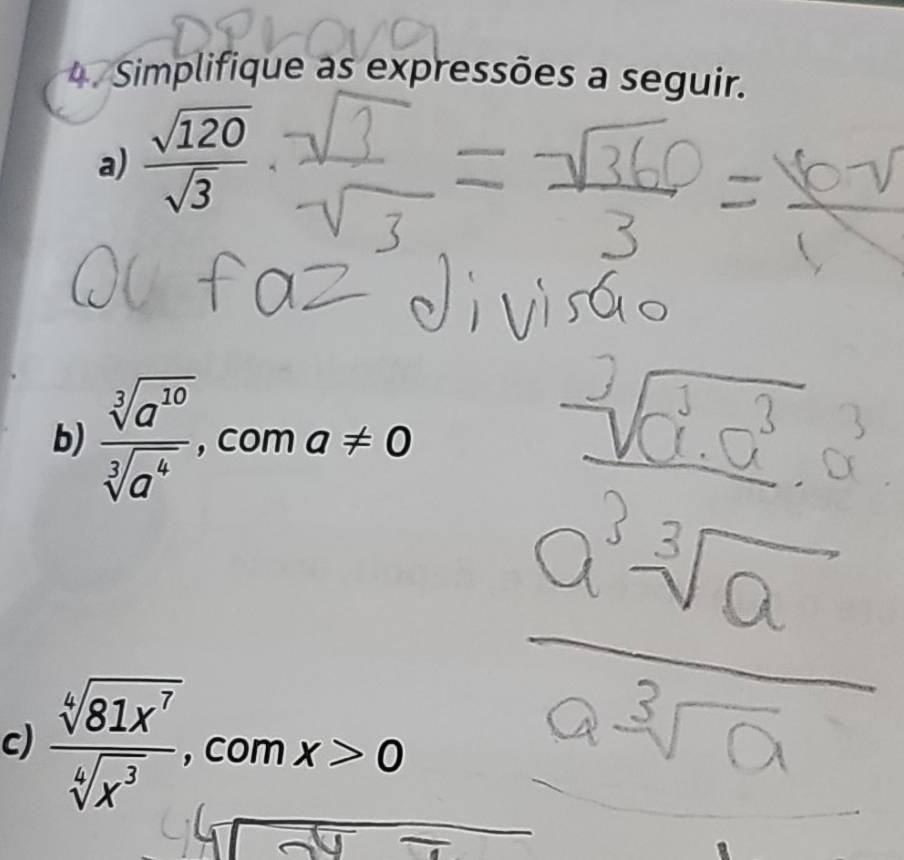 Prova
4. Simplifique as expressões a seguir.
a) √120/√3 · √3/√3 = √360/3 =
Ou faz divisão
b) ∛a¹⁰/∛a⁴, com a ≠ 0
a³∛a
a∛a
c) ∜81x⁷/∜x³, com x > 0